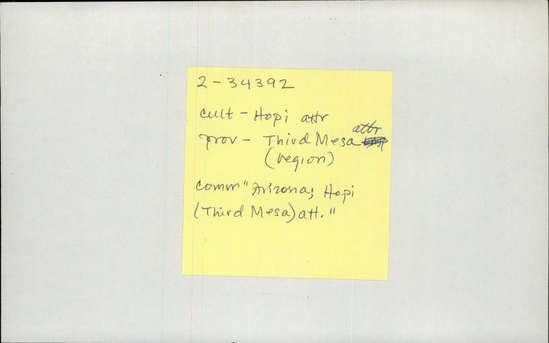 2-34392
cult - Hopi attr
prov - Third Mesa attr
(region)
comm "Arizona; Hopi
(Third Mesa) att."